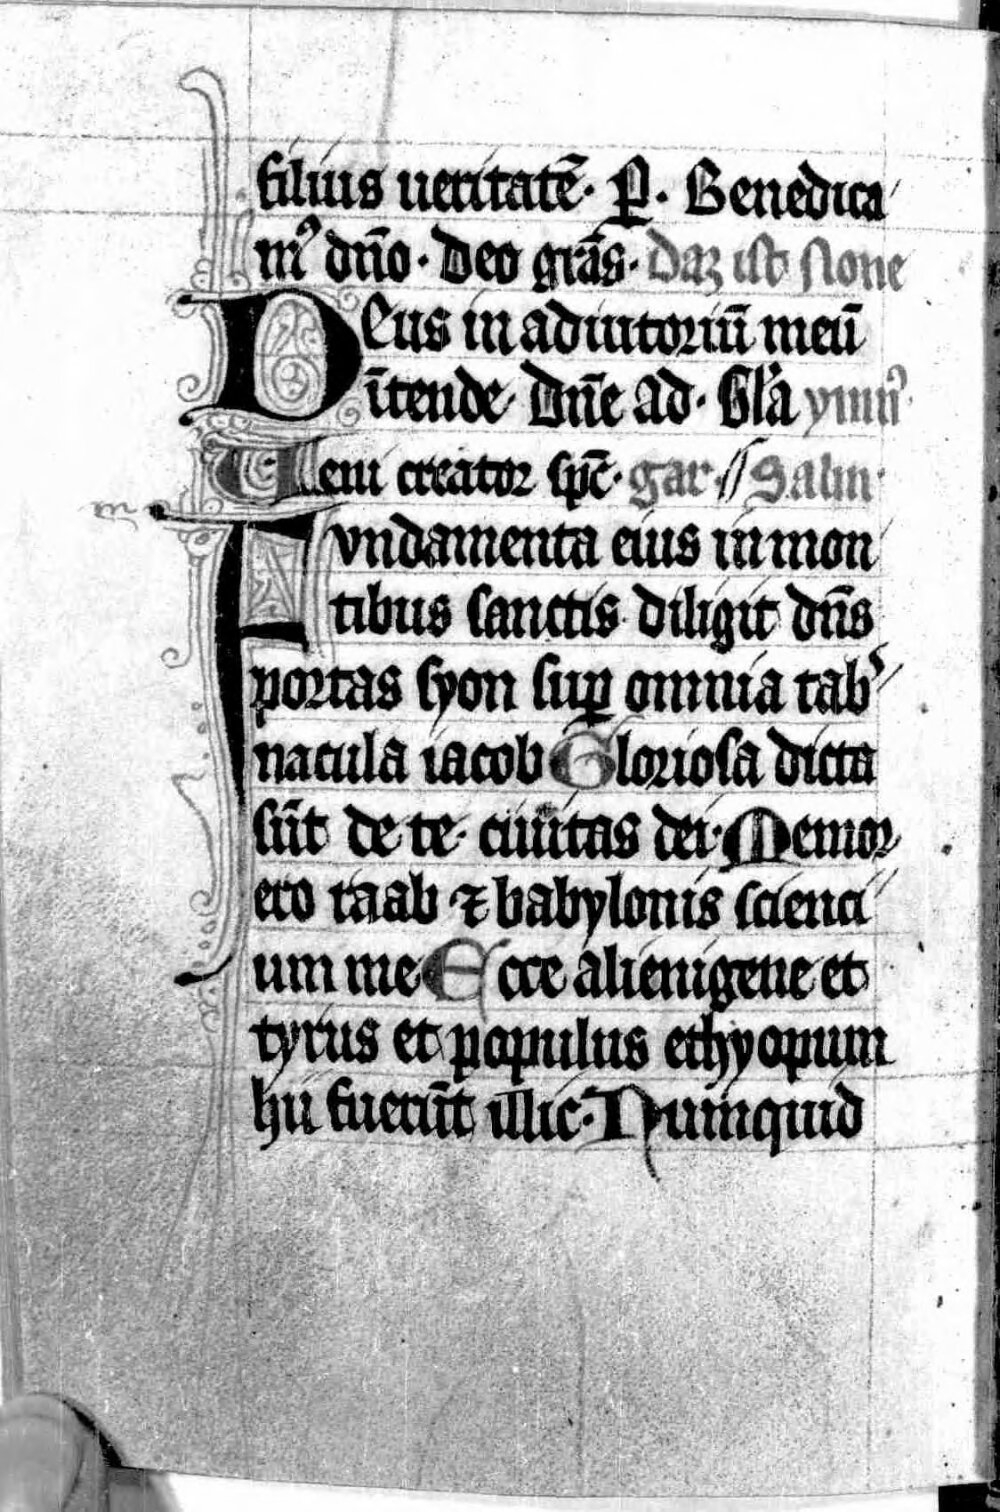 filius ueritatē· P̲· Benedica
mꝰ dn̄o· Deo grās· Daz ist None
Deus in adiutoriū meū
ītende· Dn̄e ad· Gl̄a ymnꝰ
Veni creator sp̄c· gar· Salm·
Fvndamenta eius in mon
tibus sanctis diligit dn̄s
portas syon suꝑ omnia tab᷑
nacula iacob Gloriosa dicta
sūt de te· ciuitas dei· Memor
ero raab ⁊ babylonis scienci
um me Ecce alienigene et
tyrus et populus ethyopum
hii fuerūt illic· Numquid